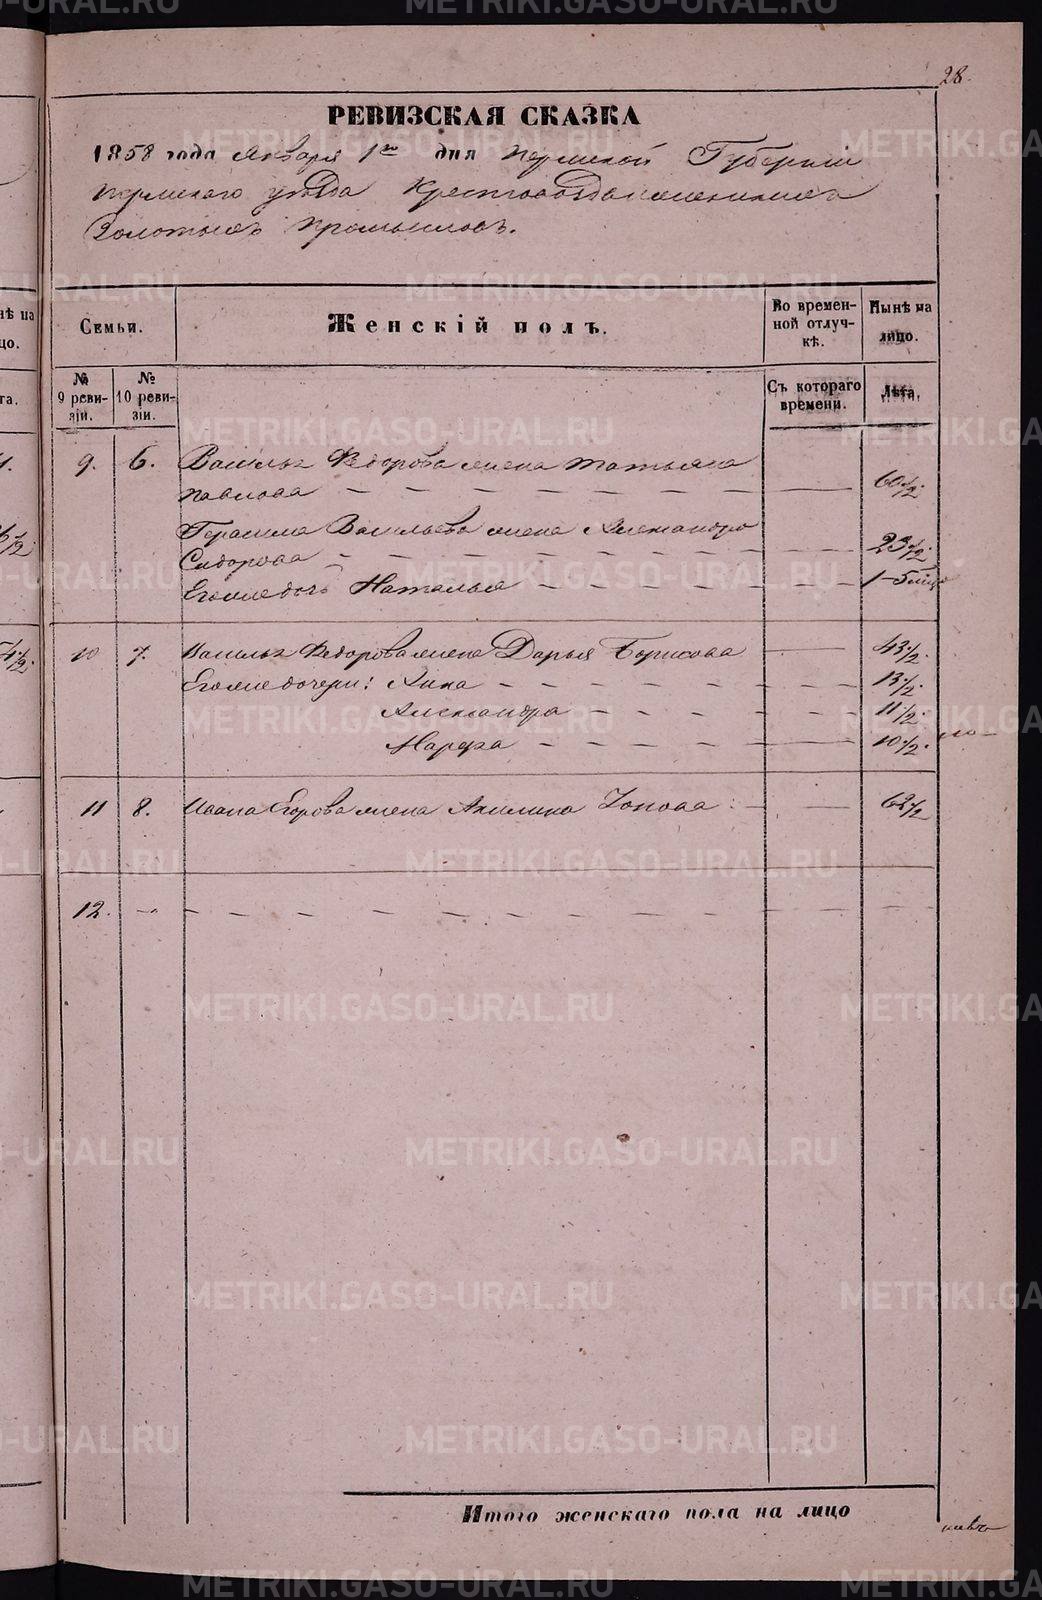 28.
РЕВИЗСКАЯ СКАЗКА
1858 года Января 1го дня Пермской Губернии
Пермского уезда Крестовоздвиженских
Золотых Промыслов.
Семьи.
Женскій полъ.
Во времен-
ной отлуч-
кѣ.
Нынѣ на
лицо.
№
9 реви-
зіи.
№
10 реви-
зіи.
Съ котораго
времени.
Лѣта.
9. 6. Василья Федорова жена Татьяна
Павлова — — — — — — — 60 1/2.
Герасима Васильева жена Александра
Сидорова — — — — — — — 23 1/2.
Его же дочь Наталья — — — — — 1-5 мѣс
10 7. Василья Федорова жена Дарья Борисова — 43 1/2.
Его же дочери: Анна — — — — — — 13 1/2.
Александра — — — — — 11 1/2.
Марфа — — — — — 10 1/2.
11 8. Ивана Егорова жена Акилина Іонова. — — 62 1/2
12. — — — — — — — — — — —
Итого женскаго пола на лицо
METRIKI.GASO-URAL.RU